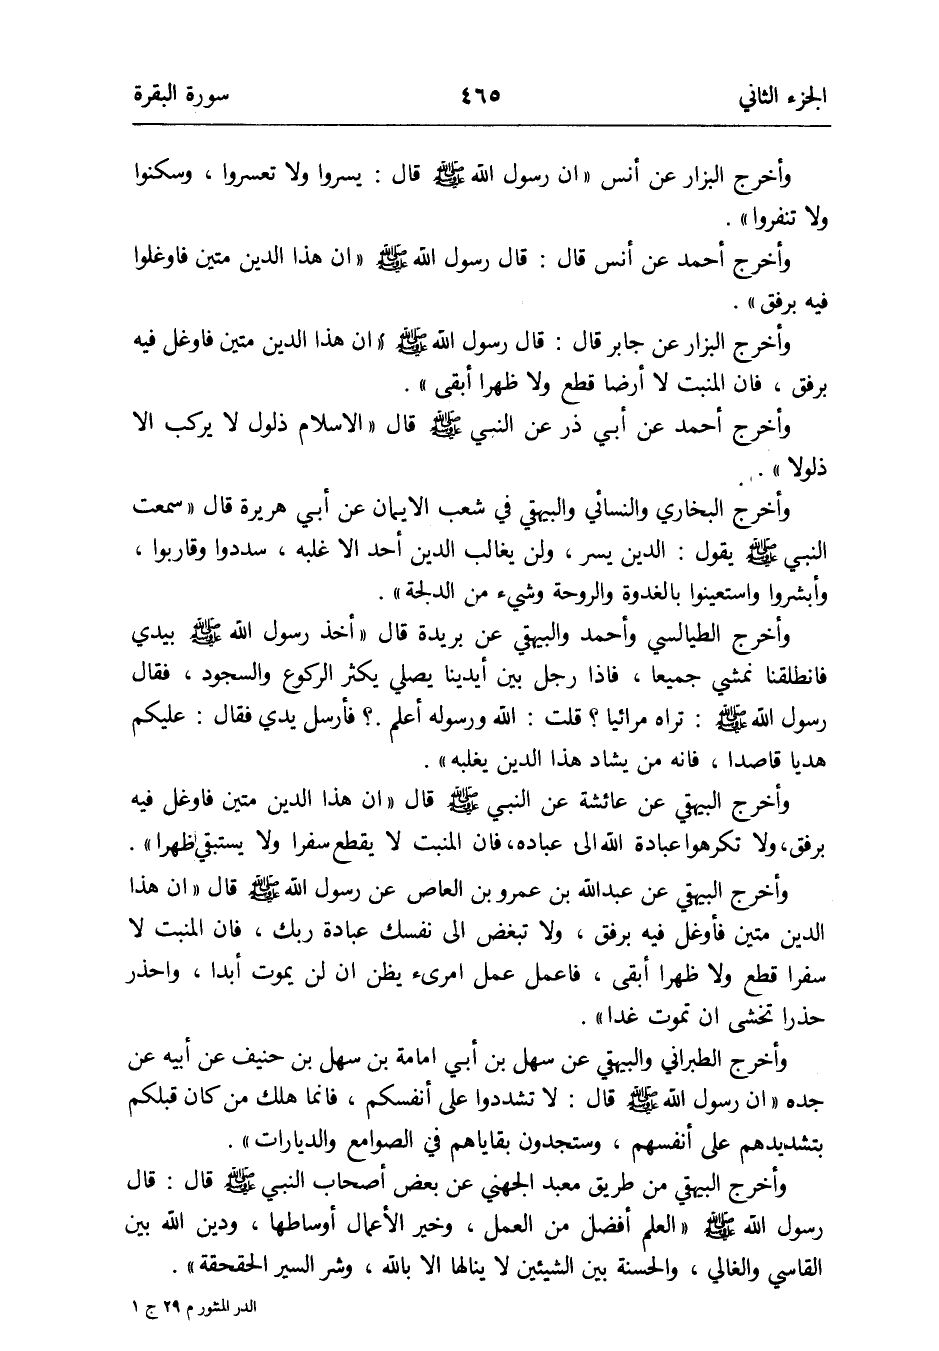 الجزء الثاني ٤٦٥ سورة البقرة
وأخرج البزار عن أنس « ان رسول الله ﷺ قال : يسروا ولا تعسروا ، وسكنوا
ولا تنفروا » .
وأخرج أحمد عن أنس قال : قال رسول الله ﷺ « ان هذا الدين متين فاوغلوا
فيه برفق » .
وأخرج البزار عن جابر قال : قال رسول الله ﷺ « ان هذا الدين متين فاوغل فيه
برفق ، فان المنبت لا أرضا قطع ولا ظهرا أبقى » .
وأخرج أحمد عن أبي ذر عن النبي ﷺ قال « الاسلام ذلول لا يركب الا
ذلولا » .
وأخرج البخاري والنسائي والبيهقي في شعب الايمان عن أبي هريرة قال « سمعت
النبي ﷺ يقول : الدين يسر ، ولن يغالب الدين أحد الا غلبه ، سددوا وقاربوا ،
وأبشروا واستعينوا بالغدوة والروحة وشيء من الدلجة » .
وأخرج الطيالسي وأحمد والبيهقي عن بريدة قال « أخذ رسول الله ﷺ بيدي
فانطلقنا نمشي جميعا ، فاذا رجل بين أيدينا يصلي يكثر الركوع والسجود ، فقال
رسول الله ﷺ : تراه مرائيا ؟ قلت : الله ورسوله أعلم .؟ فأرسل يدي فقال : عليكم
هديا قاصدا ، فانه من يشاد هذا الدين يغلبه » .
وأخرج البيهقي عن عائشة عن النبي ﷺ قال « ان هذا الدين متين فاوغل فيه
برفق، ولا تكرهوا عبادة الله الى عباده، فان المنبت لا يقطع سفرا ولا يستبقي ظهرا » .
وأخرج البيهقي عن عبدالله بن عمرو بن العاص عن رسول الله ﷺ قال « ان هذا
الدين متين فأوغل فيه برفق ، ولا تبغض الى نفسك عبادة ربك ، فان المنبت لا
سفرا قطع ولا ظهرا أبقى ، فاعمل عمل امرىء يظن ان لن يموت أبدا ، واحذر
حذرا تخشى ان تموت غدا » .
وأخرج الطبراني والبيهقي عن سهل بن أبي امامة بن سهل بن حنيف عن أبيه عن
جده « ان رسول الله ﷺ قال : لا تشددوا على أنفسكم ، فانما هلك من كان قبلكم
بتشديدهم على أنفسهم ، وستجدون بقاياهم في الصوامع والديارات » .
وأخرج البيهقي من طريق معبد الجهني عن بعض أصحاب النبي ﷺ قال : قال
رسول الله ﷺ « العلم أفضل من العمل ، وخير الأعمال أوساطها ، ودين الله بين
القاسي والغالي ، والحسنة بين الشيئين لا ينالها الا بالله ، وشر السير الحقحقة » .
الدر المنثور م ٢٩ ج ١